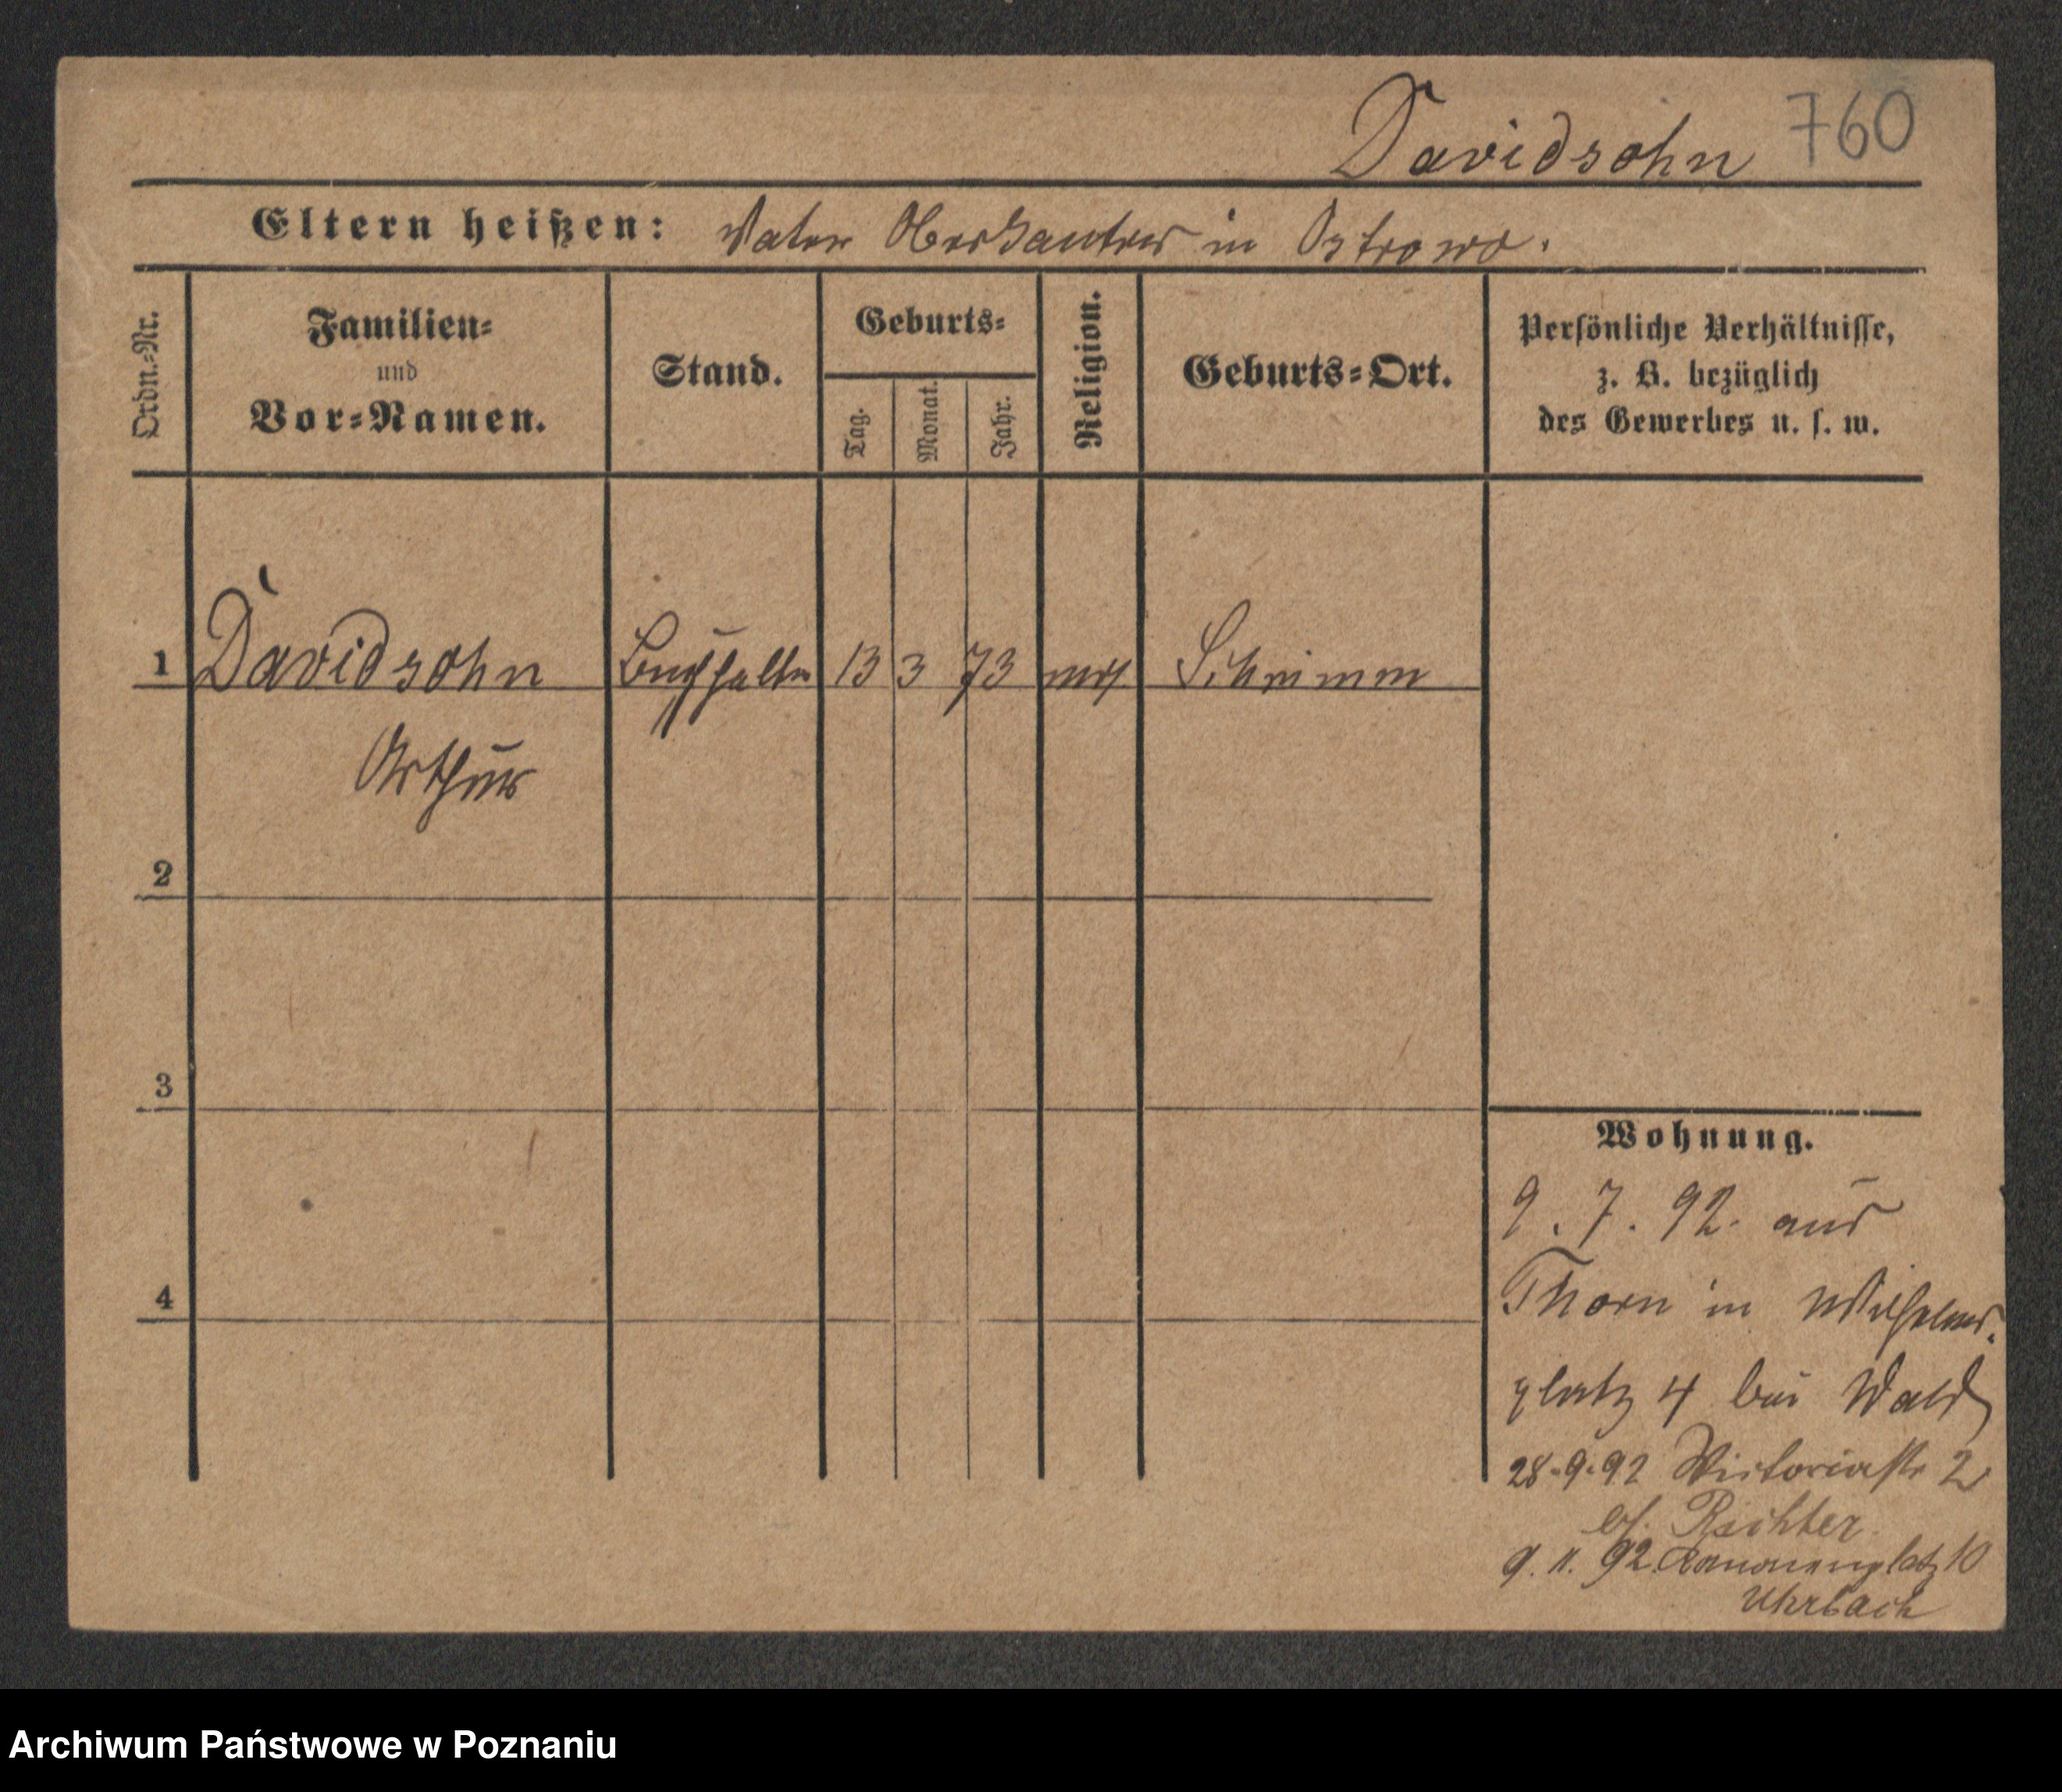 Davidsohn 760
Eltern heißen: Vater Oberkantor in Ostrowo.
Ordn.-Nr.
Familien-
und
Vor-Namen.
Stand.
Geburts-
Tag.
Monat.
Jahr.
Religion.
Geburts-Ort.
Persönliche Verhältnisse,
z. B. bezüglich
des Gewerbes u. s. w.
1 Davidsohn Buchhalter 13 3 73 mos Schrimm
Arthur
2
3
4
Wohnung.
9. 7. 92. aus
Thorn in Wilhelms-
platz 4 bei Wald
28.9.92 Victoriastr 2
bei Richter
9. 11. 92. Kanonenplatz 10
Uhrbach
Archiwum Państwowe w Poznaniu